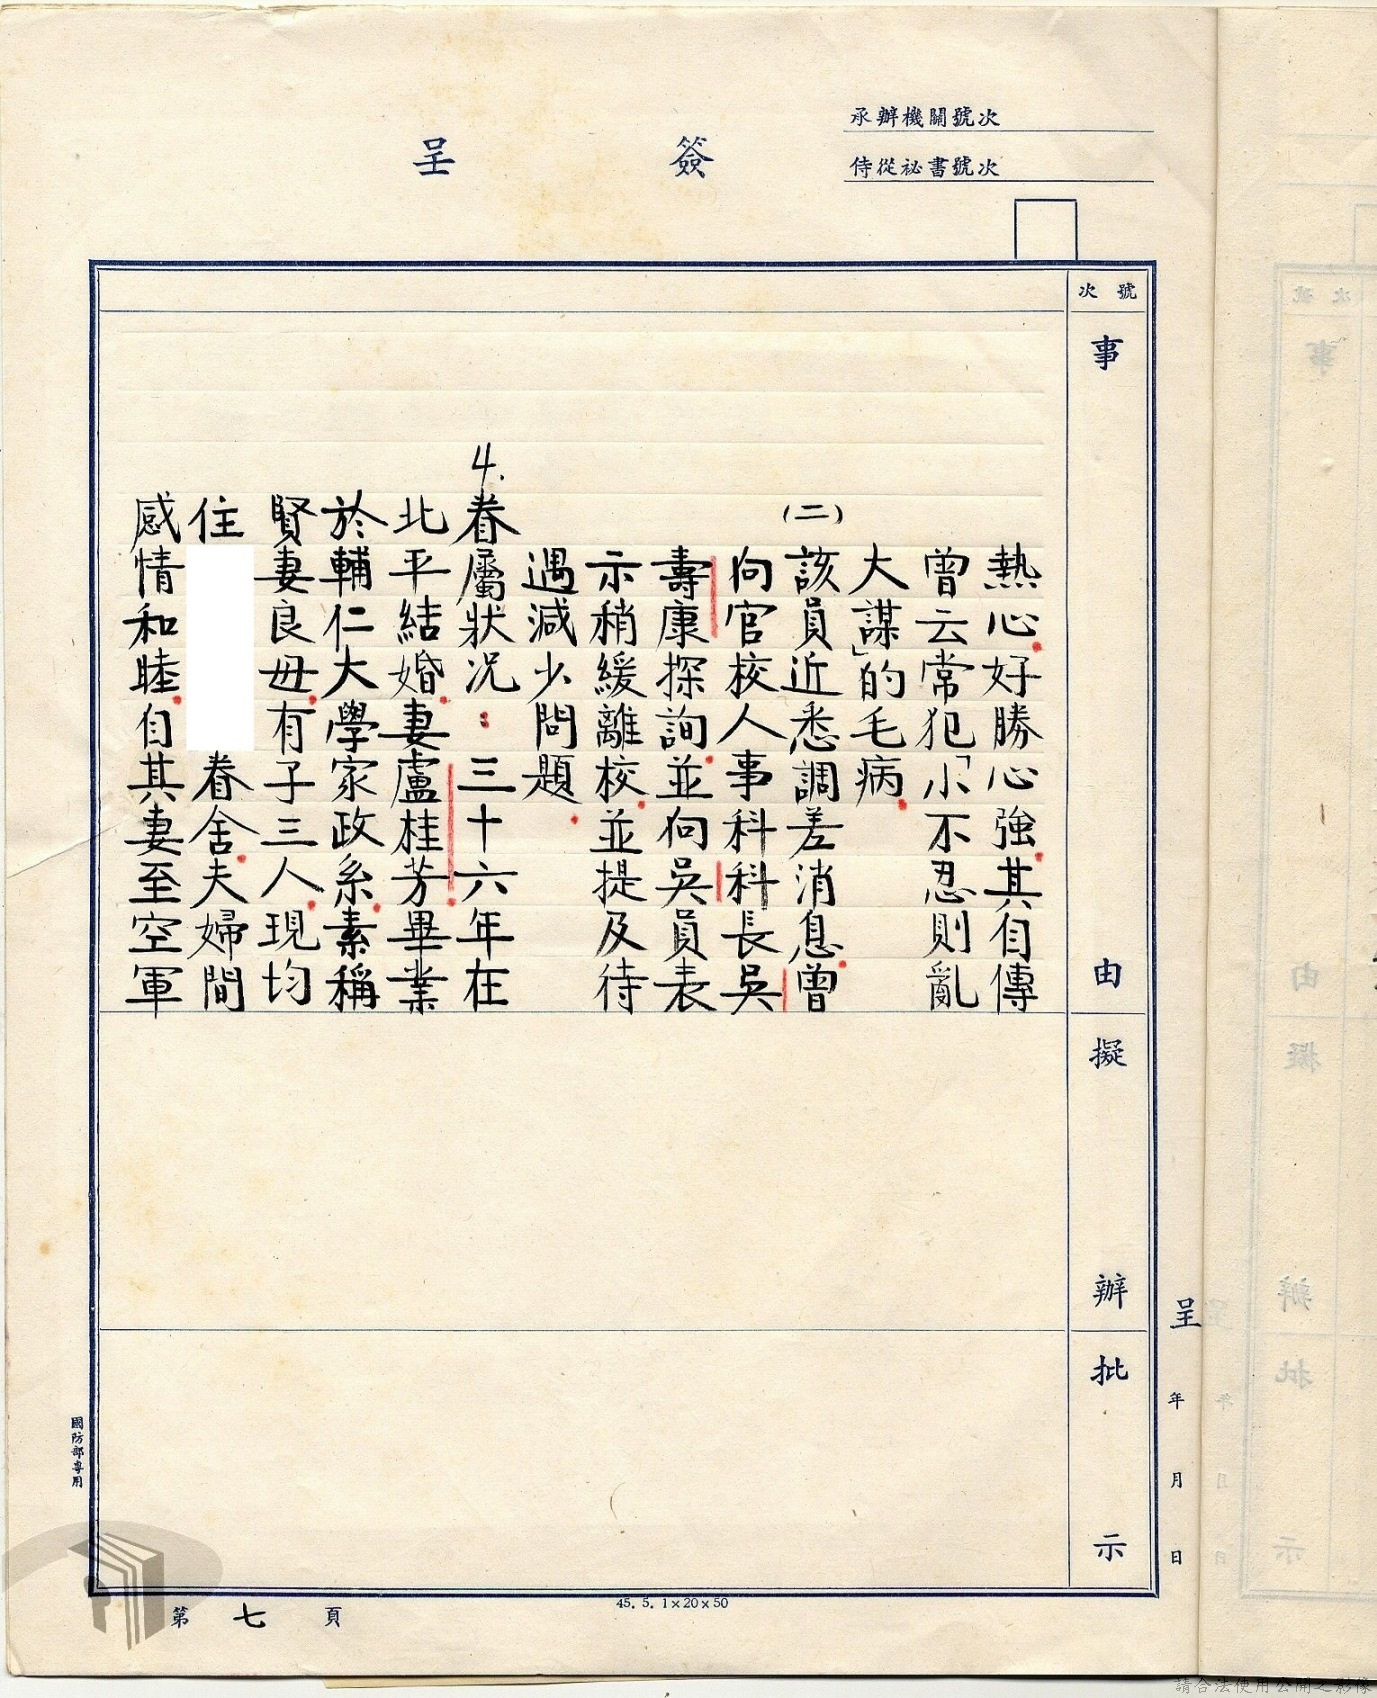 承辦機關號次
侍從祕書號次
簽呈
號次
事由
擬辦
批示
熱心好勝心強其自傳
曾云常犯「小不忍則亂
大謀」的毛病
(二)該員近悉調差消息曾
向官校人事科科長吳
壽康探詢並向吳員表
示稍緩離校並提及待
遇減少問題
4.眷屬狀況：三十六年在
北平結婚妻盧桂芳畢業
於輔仁大學家政系素稱
賢妻良母有子三人現均
住 眷舍夫婦間
感情和睦自其妻至空軍
呈 年 月 日
國防部專用
第七頁
45. 5. 1×20×50
請合法使用公開之影像